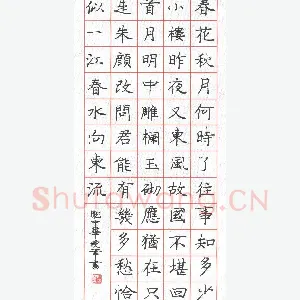 春花秋月何時了往事知多少
小樓昨夜又東風故國不堪回
首月明中雕欄玉砌應猶在只
是朱顏改問君能有幾多愁恰
似一江春水向東流